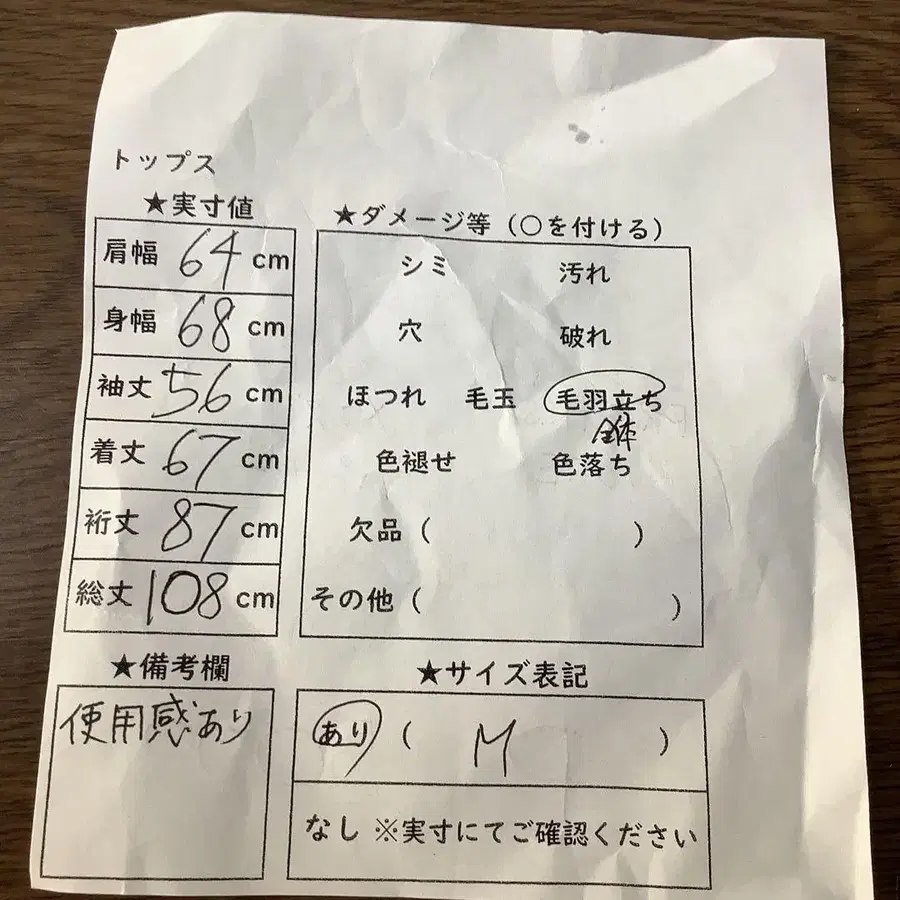 トップス
★実寸値
肩幅 64 cm
身幅 68 cm
袖丈 56 cm
着丈 67 cm
裄丈 87 cm
総丈 108 cm
★ダメージ等（○を付ける）
シミ 汚れ
穴 破れ
ほつれ 毛玉 毛羽立ち
全体
色褪せ 色落ち
欠品（ ）
その他（ ）
★備考欄
使用感あり
★サイズ表記
あり（ M ）
なし ※実寸にてご確認ください